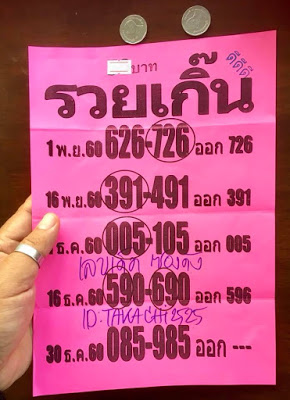 บาท
ดีดีดี
รวยเกิ๊น
1 พ.ย.60 626-726 ออก 726
16 พ.ย.60 391-491 ออก 391
ธ.ค.60 005-105 ออก 005
16 ธ.ค.60 590-690 ออก 596
ID:TAKACHI2525
30 ธ.ค.60 085-985 ออก ---